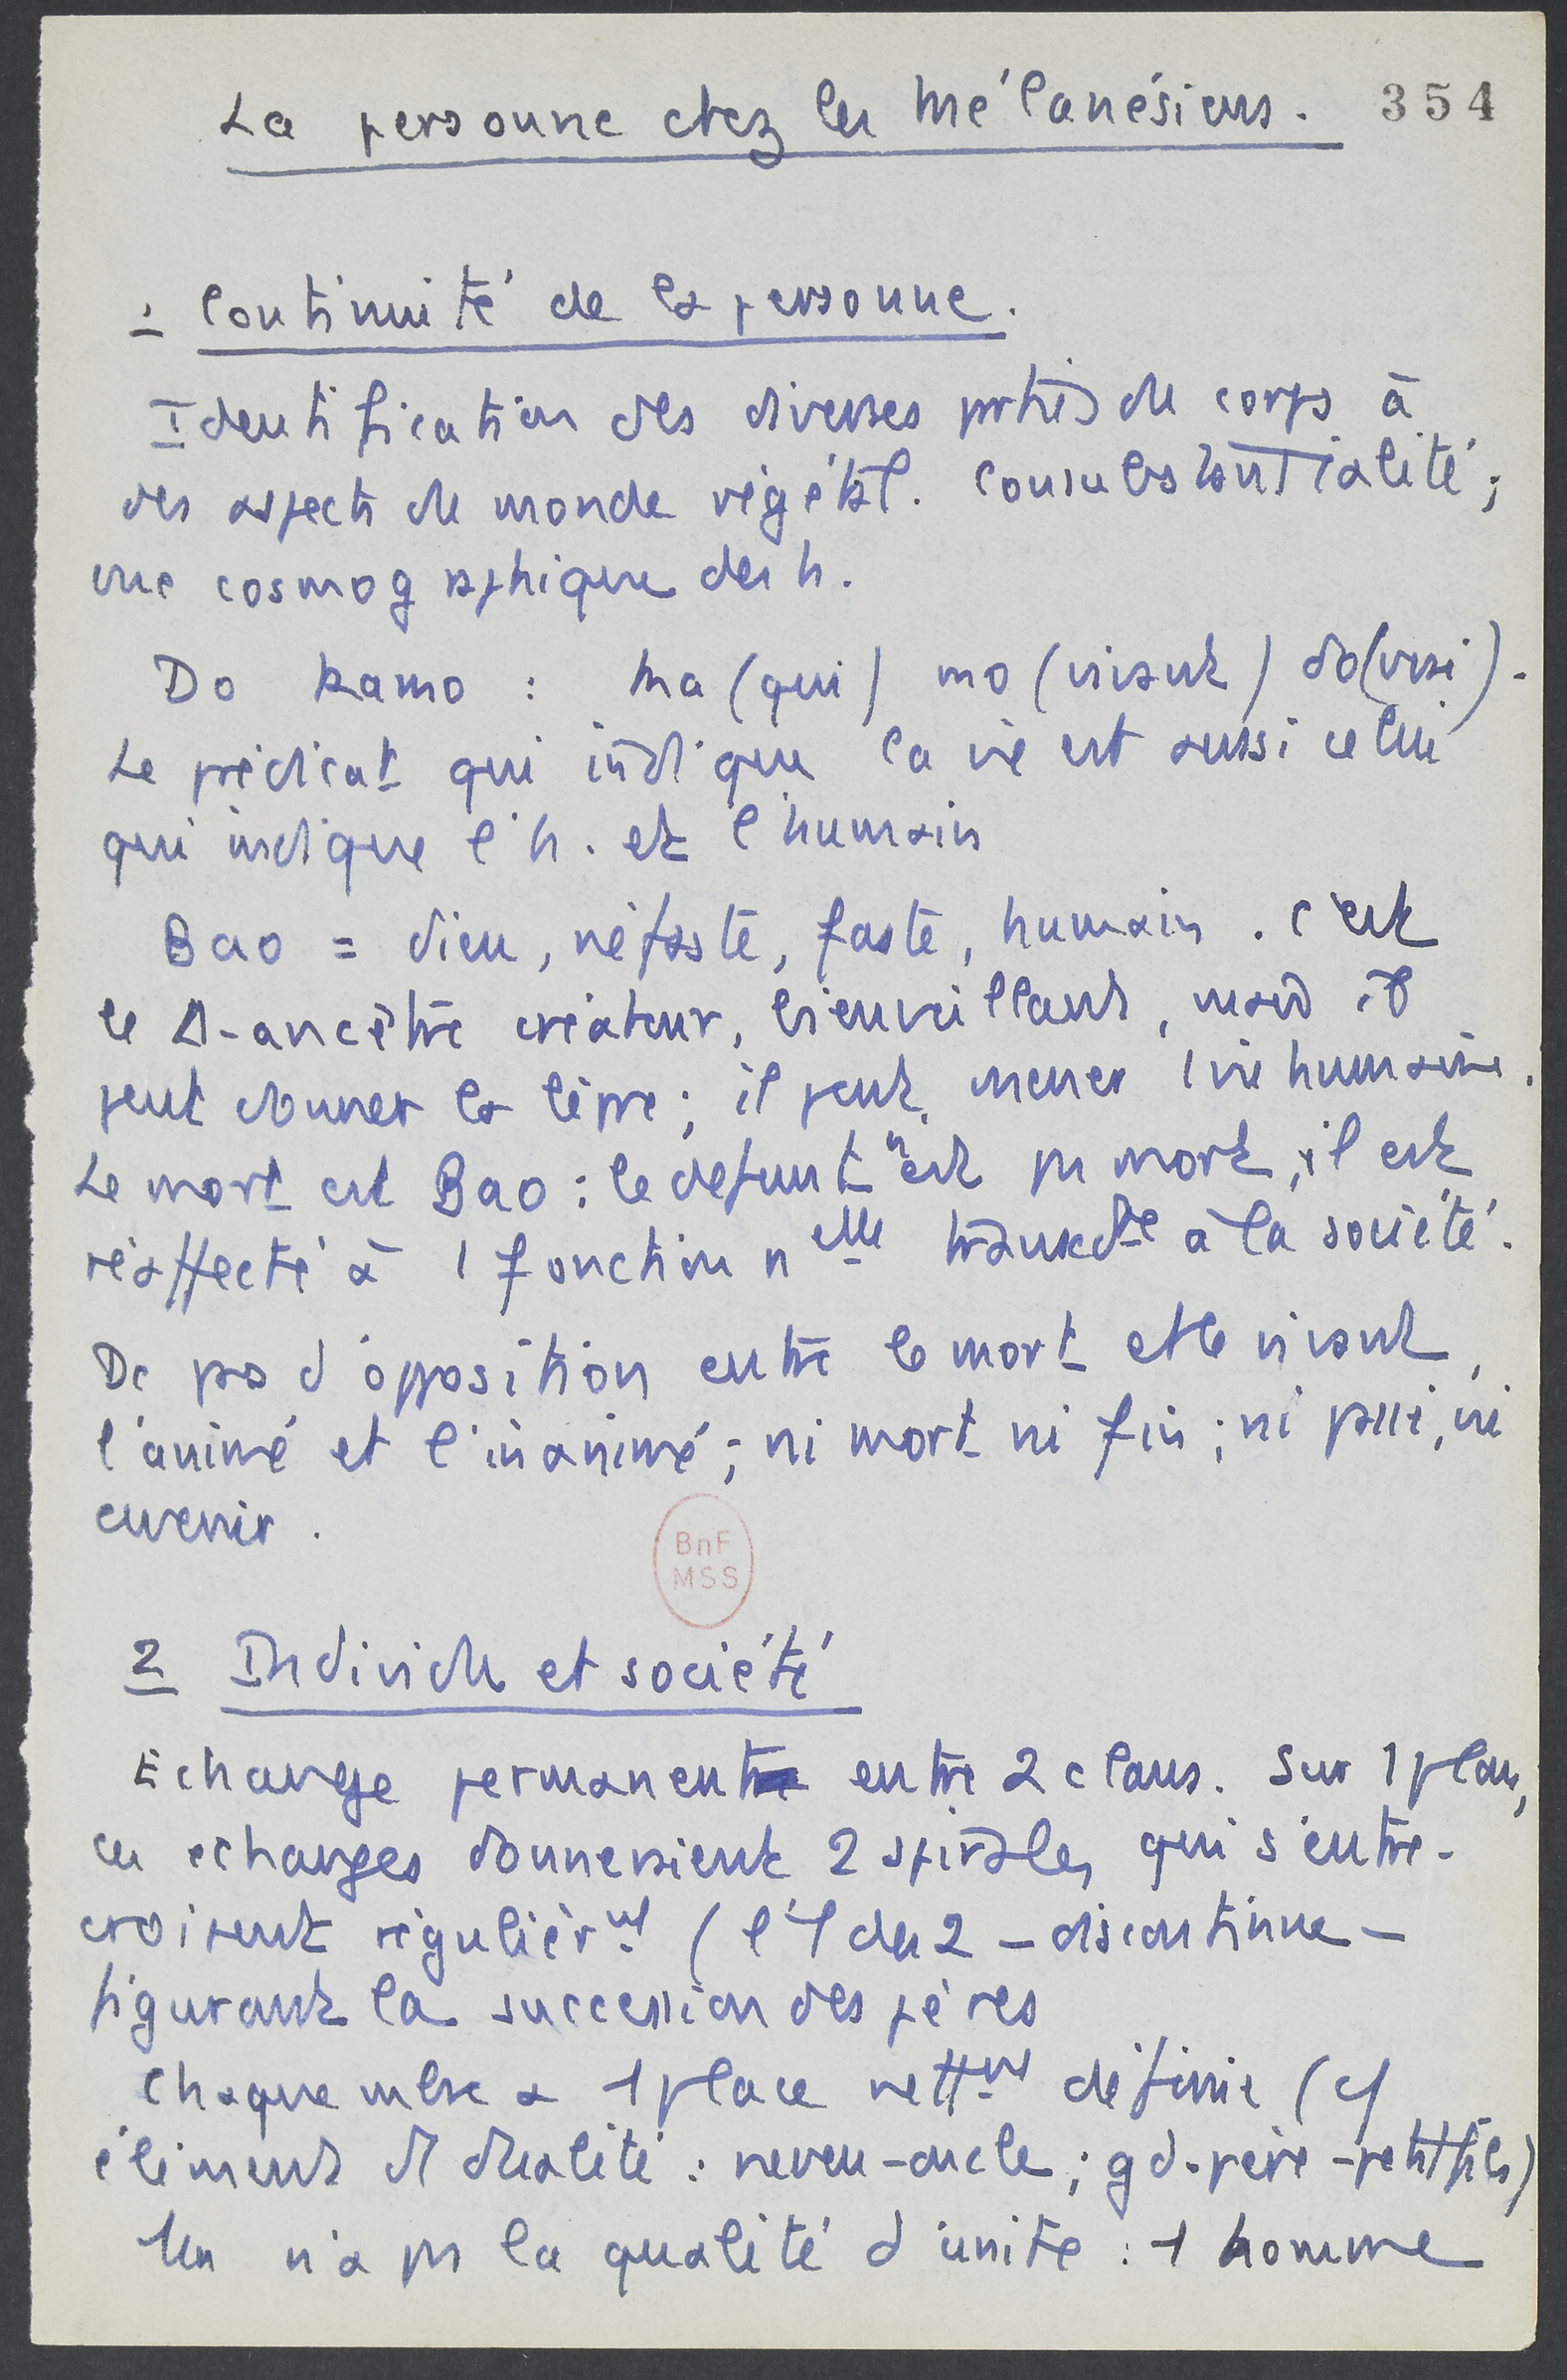 La personne chez les Mélanésiens. 354
1 Continuité de la personne.
Identification des diverses parties du corps à
des aspects du monde végétal. Consubstantialité ;
vue cosmographique des h.
Do Kamo : ka (qui) mo (vivant) do (vrai).
Le prédicat qui indique la vie est aussi celui
qui indique l'h. et l'humain
Bao = dieu, néfaste, faste, humain. c'est
le -ancêtre créateur, bienveillant, mais il
peut donner la lèpre ; il peut mener 1 vie humaine.
Le mort est Bao : le defunt n'est pas mort, il est
réaffecté à 1 fonction nelle à la société.
Dc pas d'opposition entre le mort et le vivant,
l'animé et l'inanimé ; ni mort ni fin ; ni passé, ni
avenir.
BnF
MSS
2 Individu et société
Echange permanent entre 2 clans. Sur 1 plan,
ces echanges donneraient 2 spirales qui s'entre-
croisent régulièrmt (l'1 des 2 - discontinue -
figurant la succession des pères
Chaque mbre a 1 place nettmt définie (cf
élément de dualité : neveu-oncle ; gd-père - petit fils)
Un n'a pas la qualité d'unité : 1 homme